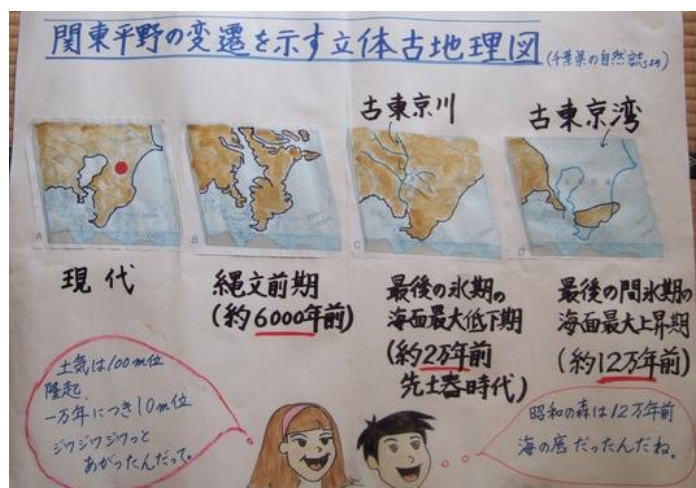 関東平野の変遷を示す立体古地理図(千葉県の自然誌より)
古東京川
古東京湾
A
B
C
D
現代
縄文前期
(約6000年前)
最後の氷期の
海面最大低下期
(約2万年前
先土器時代)
最後の間氷期の
海面最大上昇期
(約12万年前)
土気は100m位
隆起、
一万年につき10m位
ジワジワジワっと
あがったんだって。
昭和の森は12万年前
海の底だったんだね。